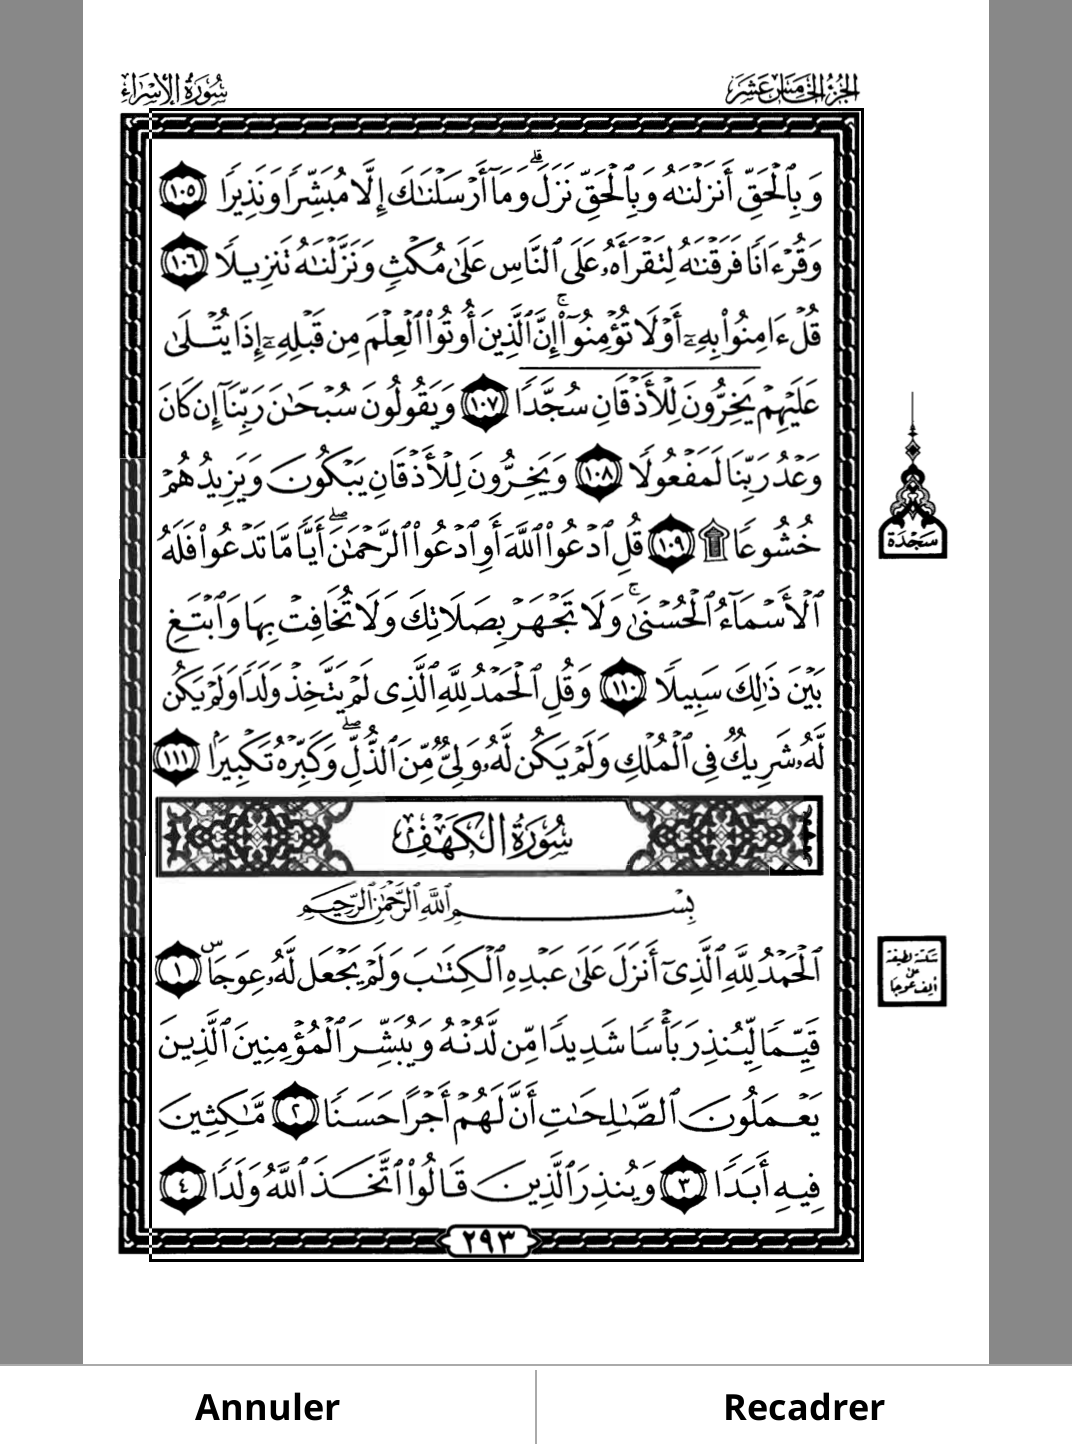 الجزء الخامس عشر
سورة الإسراء
وَبِٱلْحَقِّ أَنزَلْنَٰهُ وَبِٱلْحَقِّ نَزَلَ ۗ وَمَآ أَرْسَلْنَٰكَ إِلَّا مُبَشِّرًا وَنَذِيرًا ١٠٥
وَقُرْءَانًا فَرَقْنَٰهُ لِتَقْرَأَهُۥ عَلَى ٱلنَّاسِ عَلَىٰ مُكْثٍ وَنَزَّلْنَٰهُ تَنزِيلًا ١٠٦
قُلْ ءَامِنُوا۟ بِهِۦٓ أَوْ لَا تُؤْمِنُوٓا۟ ۚ إِنَّ ٱلَّذِينَ أُوتُوا۟ ٱلْعِلْمَ مِن قَبْلِهِۦٓ إِذَا يُتْلَىٰ
عَلَيْهِمْ يَخِرُّونَ لِلْأَذْقَانِ سُجَّدًا ١٠٧ وَيَقُولُونَ سُبْحَٰنَ رَبِّنَآ إِن كَانَ
وَعْدُ رَبِّنَا لَمَفْعُولًا ١٠٨ وَيَخِرُّونَ لِلْأَذْقَانِ يَبْكُونَ وَيَزِيدُهُمْ
خُشُوعًا ۩ ١٠٩ قُلِ ٱدْعُوا۟ ٱللَّهَ أَوِ ٱدْعُوا۟ ٱلرَّحْمَٰنَ ۖ أَيًّا مَّا تَدْعُوا۟ فَلَهُ
ٱلْأَسْمَآءُ ٱلْحُسْنَىٰ ۚ وَلَا تَجْهَرْ بِصَلَاتِكَ وَلَا تُخَافِتْ بِهَا وَٱبْتَغِ
بَيْنَ ذَٰلِكَ سَبِيلًا ١١٠ وَقُلِ ٱلْحَمْدُ لِلَّهِ ٱلَّذِى لَمْ يَتَّخِذْ وَلَدًا وَلَمْ يَكُن
لَّهُۥ شَرِيكٌ فِى ٱلْمُلْكِ وَلَمْ يَكُن لَّهُۥ وَلِىٌّ مِّنَ ٱلذُّلِّ ۖ وَكَبِّرْهُ تَكْبِيرًۢا ١١١
سجدة
سُورَةُ الكَهْفِ
بِسْمِ ٱللَّهِ ٱلرَّحْمَٰنِ ٱلرَّحِيمِ
ٱلْحَمْدُ لِلَّهِ ٱلَّذِىٓ أَنزَلَ عَلَىٰ عَبْدِهِ ٱلْكِتَٰبَ وَلَمْ يَجْعَل لَّهُۥ عِوَجَا ۜ ١
قَيِّمًا لِّيُنذِرَ بَأْسًا شَدِيدًا مِّن لَّدُنْهُ وَيُبَشِّرَ ٱلْمُؤْمِنِينَ ٱلَّذِينَ
يَعْمَلُونَ ٱلصَّٰلِحَٰتِ أَنَّ لَهُمْ أَجْرًا حَسَنًا ٢ مَّٰكِثِينَ
فِيهِ أَبَدًا ٣ وَيُنذِرَ ٱلَّذِينَ قَالُوا۟ ٱتَّخَذَ ٱللَّهُ وَلَدًا ٤
سكتة لطيفة
على
ألف عوجا
٢٩٣
Annuler
Recadrer